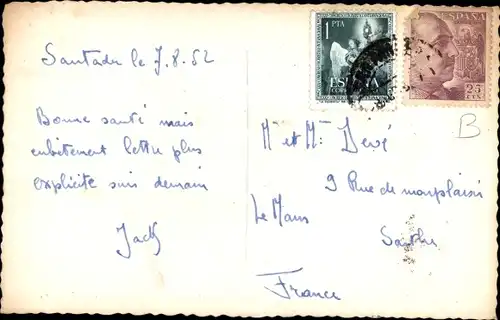 Santader le 7.8.52
Bonne santé mais
embêtement lettre plus
explicite suis demain
Jack
1
PTA
ESPAÑA
CORREOS
ESPAÑA
25
CTS
B
M et Me Devé
9 Rue de monplaisir
Le Mans
Sarthe
France